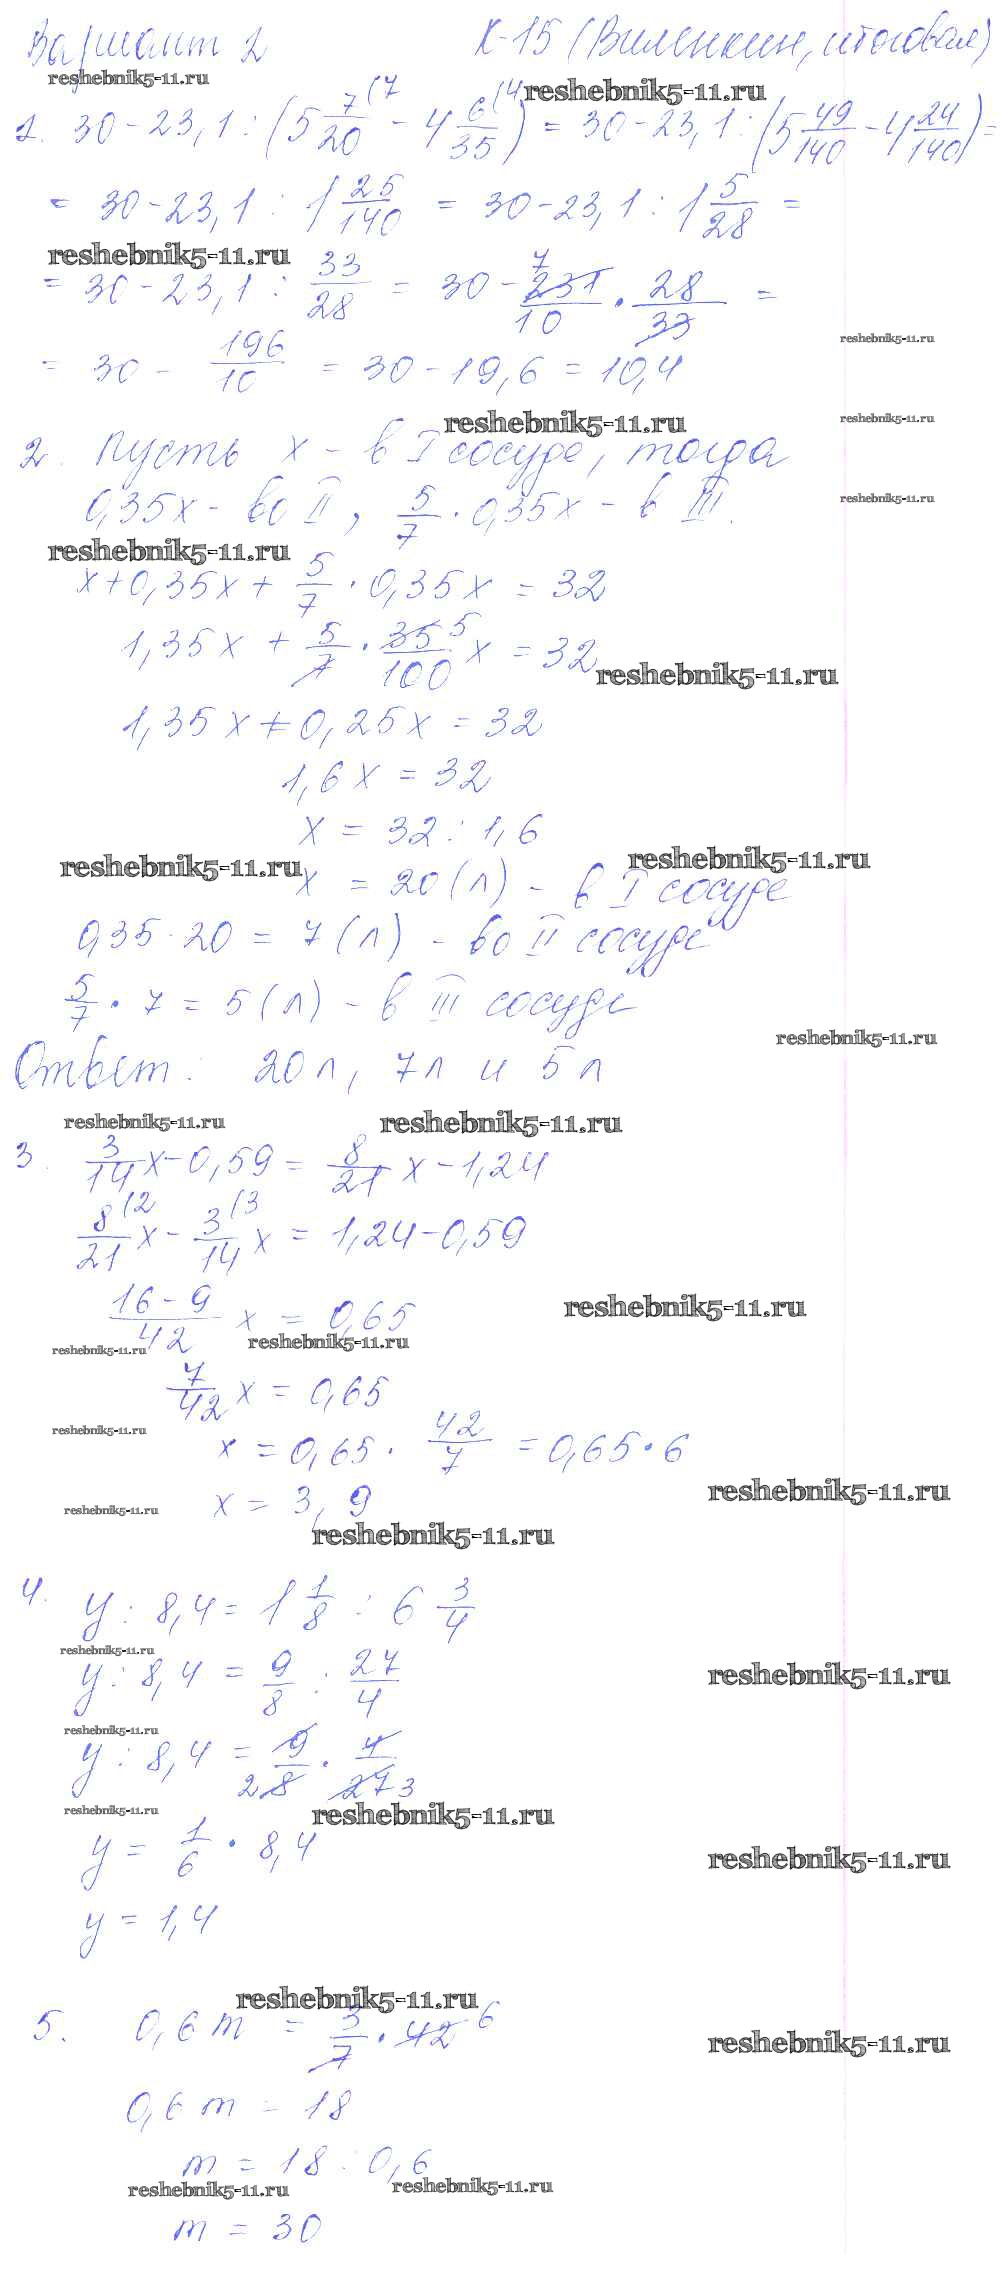 Вариант 2 К-15 (Виленкин, итоговая)
reshebnik5-11.ru
reshebnik5-11.ru
1. 30 - 23,1 : (5 7/20 (7 - 4 6/35 (4) = 30 - 23,1 : (5 49/140 - 4 24/140) =
= 30 - 23,1 : 1 25/140 = 30 - 23,1 : 1 5/28 =
reshebnik5-11.ru
= 30 - 23,1 : 33/28 = 30 - 7 231/10 · 28/33 =
reshebnik5-11.ru
= 30 - 196/10 = 30 - 19,6 = 10,4
reshebnik5-11.ru
reshebnik5-11.ru
2. Пусть x - в I сосуде, тогда
0,35x - во II, 5/7 · 0,35x - в III.
reshebnik5-11.ru
reshebnik5-11.ru
x + 0,35x + 5/7 · 0,35x = 32
1,35x + 5/7 · 35/100 5 x = 32
reshebnik5-11.ru
1,35x + 0,25x = 32
1,6x = 32
x = 32 : 1,6
reshebnik5-11.ru
reshebnik5-11.ru
x = 20 (л) - в I сосуде
0,35 · 20 = 7 (л) - во II сосуде
5/7 · 7 = 5 (л) - в III сосуде
reshebnik5-11.ru
Ответ: 20 л, 7 л и 5 л
reshebnik5-11.ru
reshebnik5-11.ru
3. 3/14 x - 0,59 = 8/21 x - 1,24
8/21 (2 x - 3/14 (3 x = 1,24 - 0,59
16 - 9/42 x = 0,65
reshebnik5-11.ru
reshebnik5-11.ru
reshebnik5-11.ru
7/42 x = 0,65
reshebnik5-11.ru
x = 0,65 · 42/7 = 0,65 · 6
reshebnik5-11.ru
x = 3,9
reshebnik5-11.ru
reshebnik5-11.ru
4. y : 8,4 = 1 1/8 : 6 3/4
reshebnik5-11.ru
y : 8,4 = 9/8 : 27/4
reshebnik5-11.ru
reshebnik5-11.ru
y : 8,4 = 9/2 8 · 4/27 3
reshebnik5-11.ru
reshebnik5-11.ru
y = 1/6 · 8,4
reshebnik5-11.ru
y = 1,4
reshebnik5-11.ru
5. 0,6 m = 3/7 · 42 6
reshebnik5-11.ru
0,6 m = 18
m = 18 : 0,6
reshebnik5-11.ru
reshebnik5-11.ru
m = 30